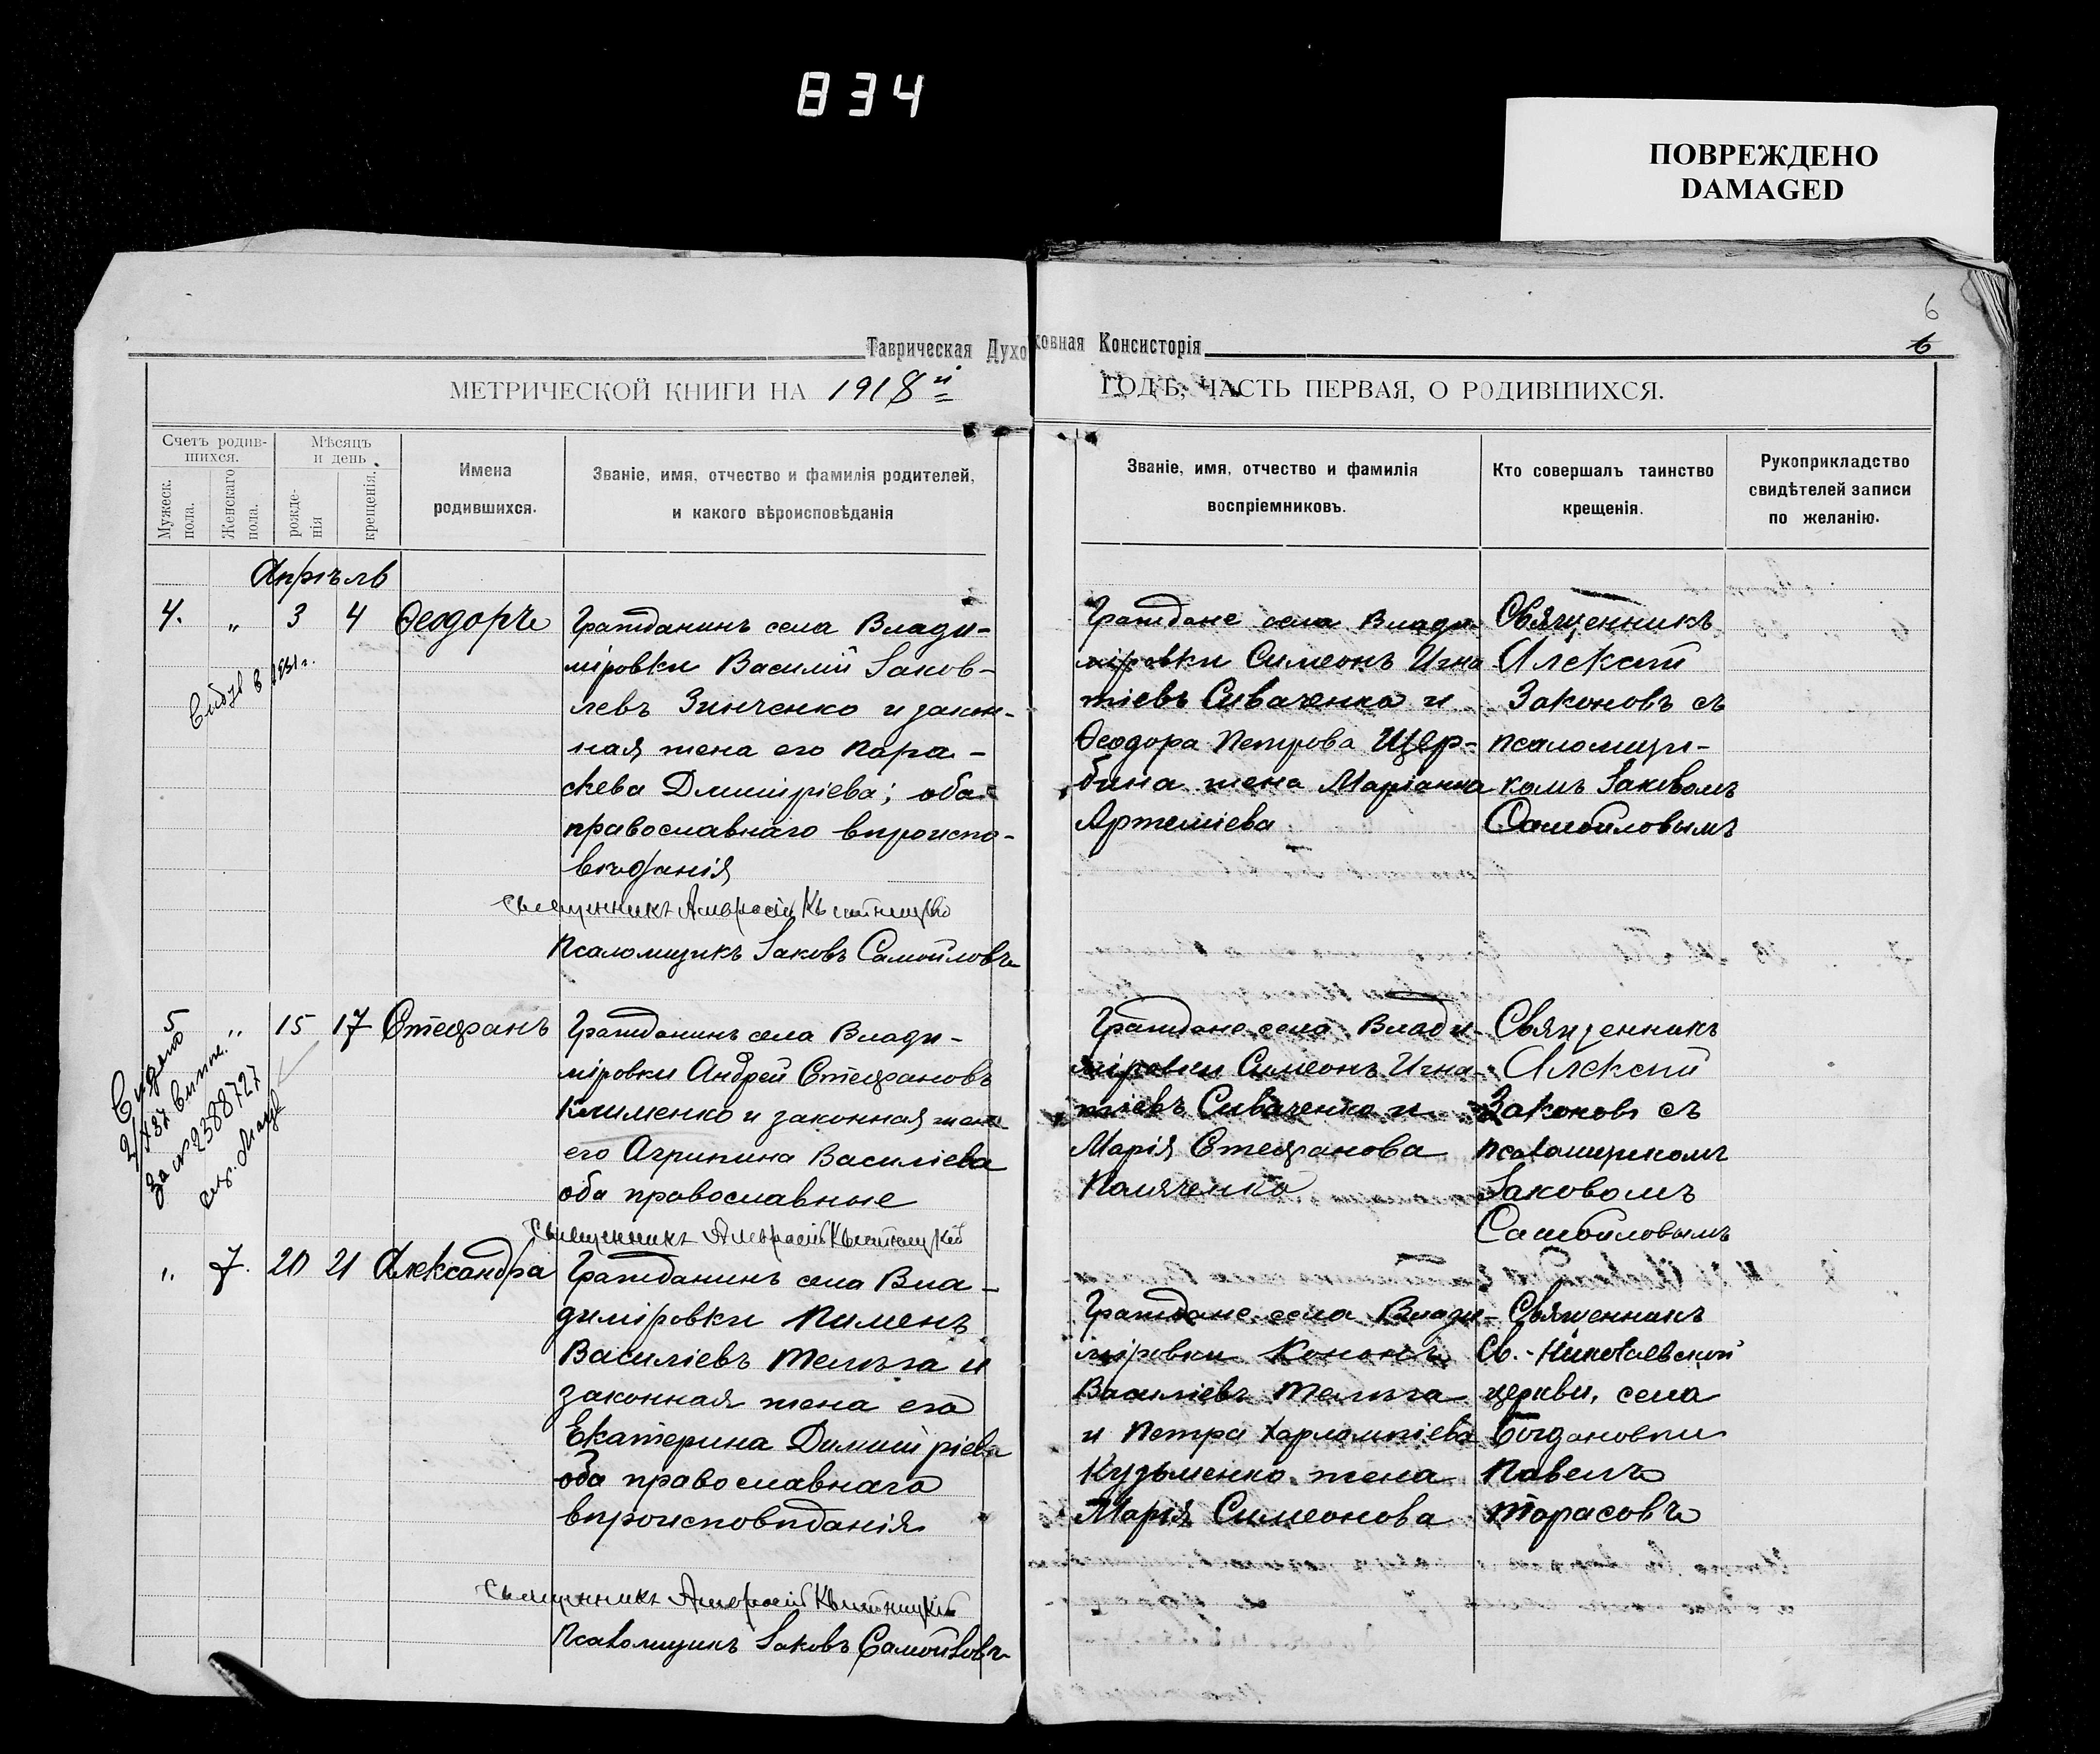 834
ПОВРЕЖДЕНО
DAMAGED
6
6
Таврическая Духовная Консисторія
МЕТРИЧЕСКОЙ КНИГИ НА 1918й ГОДЪ, ЧАСТЬ ПЕРВАЯ, О РОДИВШИХСЯ.
Счетъ родив-
шихся.
Мужеск.
пола.
Женскаго
пола.
Мѣсяцъ
и день
рожде-
нія
крещенія.
Имена
родившихся.
Званіе, имя, отчество и фамилія родителей,
и какого вѣроисповѣданія
Званіе, имя, отчество и фамилія
воспріемниковъ.
Кто совершалъ таинство
крещенія.
Рукоприкладство
свидѣтелей записи
по желанію.
Апрѣль
4. " 3 4 Ѳеодоръ
в 1931 г.
Гражданинъ села Влади-
міровки Василій Іаков-
левъ Зинченко и закон-
ная жена его Пара-
скева Димитріева; оба
православнаго вѣроиспо-
вѣданія
Священникъ Амвросій
Псаломщикъ Іаковъ Самойловъ
Граждане села Влади-
міровки Симеонъ Игна
тіевъ Сиваченко и
Ѳеодора Петрова Щер-
бина жена Маріанна
Артеміева
Священникъ
Алексій
Законовъ съ
псаломщи-
комъ Іаковомъ
Самойловымъ
5 " 15 17 Стефанъ
за № 2388727
Гражданинъ села Влади-
міровки Андрей Стефановъ
Клименко и законная жена
его Агрипина Василіева
оба православные
Священникъ Амвросій
Граждане села Влади-
міровки Симеонъ Игна-
тіевъ Сиваченко и
Марія Стефанова
Священникъ
Алексій
Законовъ съ
псаломщикомъ
Іаковомъ
Самойловымъ
" 7. 20 21 Александра
Гражданинъ села Вла-
диміровки Пименъ
Василіевъ Телѣга и
законная жена его
Екатерина Димитріева
оба православнаго
вѣроисповѣданія
Священникъ Амвросій
Псаломщикъ Іаковъ Самойловъ
Граждане села Влади-
міровки Кононъ
Василіевъ Телѣга
и Петра Харлампіева
Кузьменко жена
Марія Симеонова
Священникъ
Св.-Николаевской
церкви, села
Богдановки
Павелъ
Тарасовъ